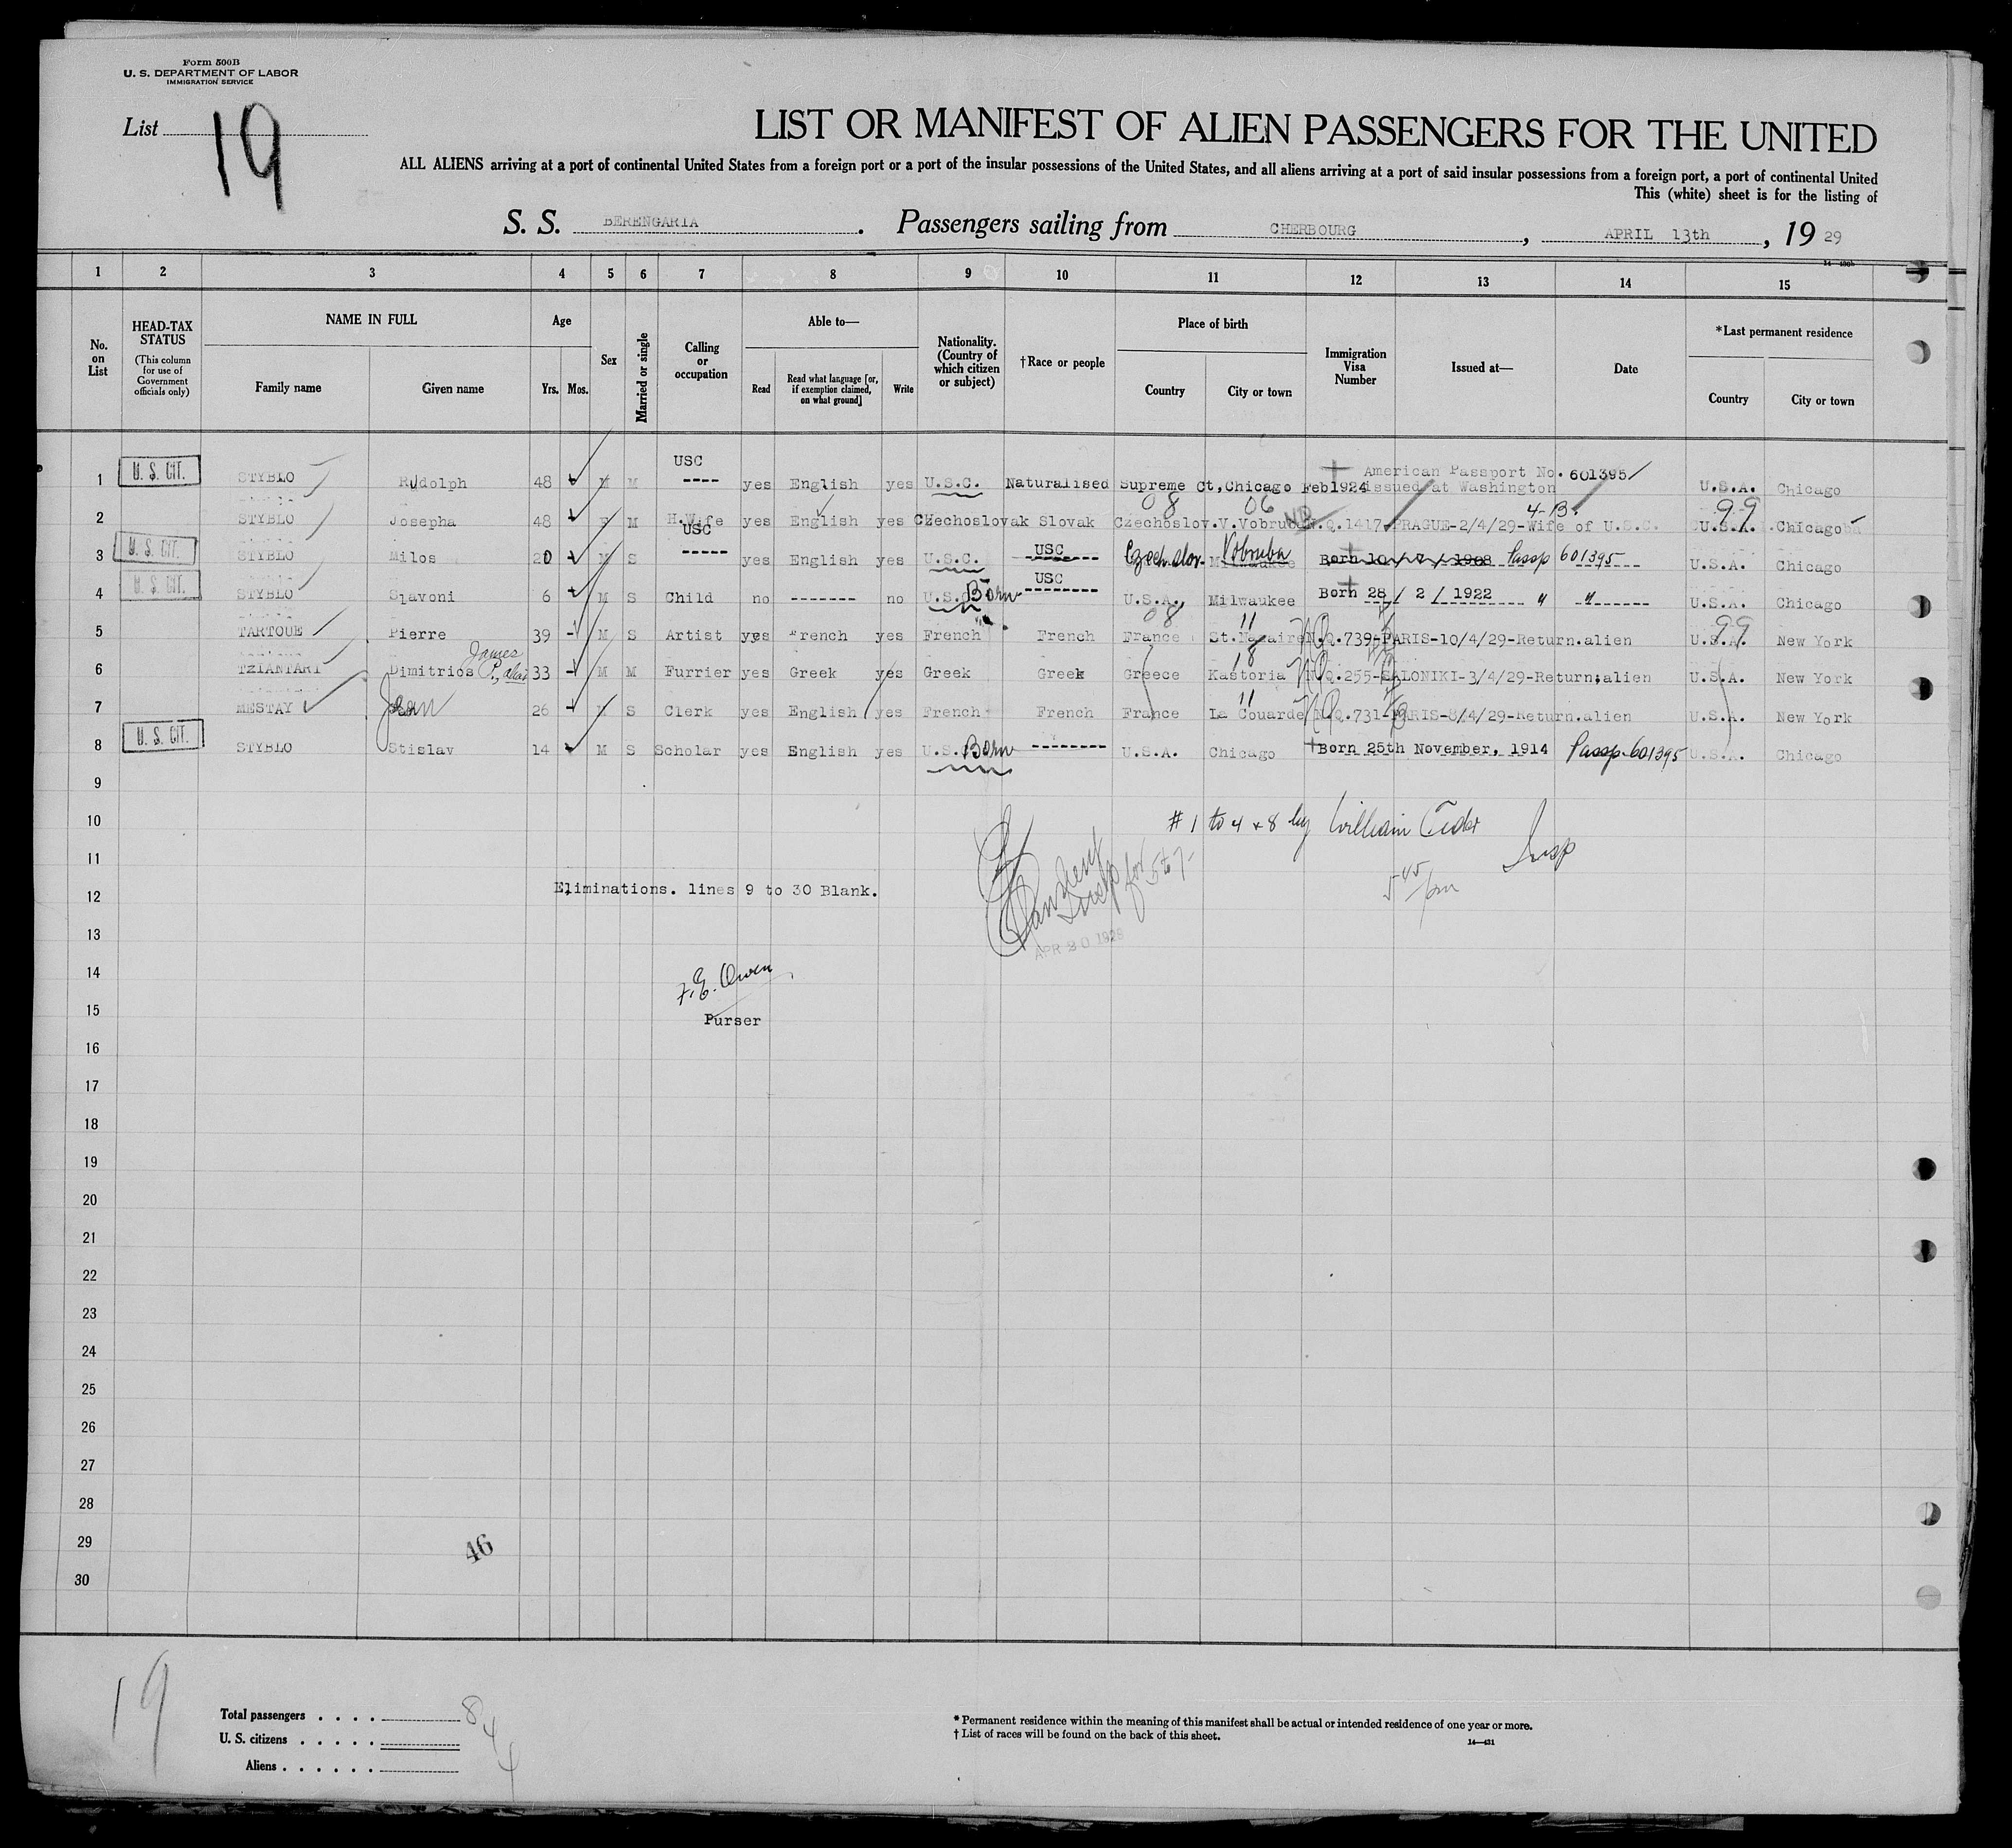 Form 500B
U. S. DEPARTMENT OF LABOR
IMMIGRATION SERVICE
List 19
LIST OR MANIFEST OF ALIEN PASSENGERS FOR THE UNITED
ALL ALIENS arriving at a port of continental United States from a foreign port or a port of the insular possessions of the United States, and all aliens arriving at a port of said insular possessions from a foreign port, a port of continental United
This (white) sheet is for the listing of
S. S. BERENGARIA. Passengers sailing from CHERBOURG, APRIL 13th, 19 29
1 2 3 4 5 6 7 8 9 10 11 12 13 14 15
No. on List
HEAD-TAX STATUS
(This column for use of Government officials only)
NAME IN FULL
Family name
Given name
Age
Yrs. Mos.
Sex
Married or single
Calling or occupation
Able to—
Read
Read what language [or, if exemption claimed, on what ground]
Write
Nationality. (Country of which citizen or subject)
†Race or people
Place of birth
Country
City or town
Immigration Visa Number
Issued at—
Date
*Last permanent residence
Country
City or town
USC
American Passport No. 601395
1 U. S. CIT. STYBLO Rudolph 48 M M ---- yes English yes U.S.C. Naturalised Supreme Ct, Chicago Feb1924 issued at Washington U.S.A. Chicago
08 06 4-B. 99
2 STYBLO Josepha 48 F M H.Wife yes English yes Czechoslovak Slovak Czechoslov. V.Vobrub N.Q.1417. PRAGUE-2/4/29-Wife of U.S.C. U.S.A. Chicago
USC USC
3 U. S. CIT. STYBLO Milos 20 M S ----- yes English yes U.S.C. ------- Czech slov. Milwaukee Vobruba Born 10/ 7 / 1908 Passp 601395 U.S.A. Chicago
USC
4 U. S. CIT. STYBLO Slavoni 6 M S Child no ------- no U.S. Born -------- U.S.A. Milwaukee Born 28/ 2 / 1922 " " U.S.A. Chicago
08 11 99
5 TARTOUE Pierre 39 M S Artist yes French yes French French France St.Nazaire N.Q.739-PARIS-10/4/29-Return.alien U.S.A. New York
James
6 TZIANTARI Dimitrios 33 M M Furrier yes Greek yes Greek Greek Greece Kastoria N.Q.255-SALONIKI-3/4/29-Return.alien U.S.A. New York
11
7 MESTAY Jean 26 M S Clerk yes English yes French French France La Couarde N.Q.731-PARIS-8/4/29-Return.alien U.S.A. New York
8 U. S. CIT. STYBLO Stislav 14 M S Scholar yes English yes U.S. Born -------- U.S.A. Chicago Born 25th November, 1914 Passp. 601395 U.S.A. Chicago
9
10 # 1 to 4 + 8 by William
11 Insp
12 Eliminations. lines 9 to 30 Blank. Insp for 5 to 7 5 45/pm
13 APR 20 1929
14 F.E. Owen
15 Purser
16
17
18
19
20
21
22
23
24
25
26
27
28
29 46
30
19
Total passengers . . . . 8
U. S. citizens . . . . . 4
Aliens . . . . . . 4
* Permanent residence within the meaning of this manifest shall be actual or intended residence of one year or more.
† List of races will be found on the back of this sheet.
14—431